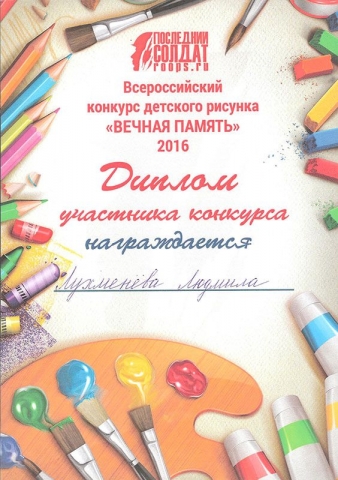 ПОСЛЕДНИЙ
СОЛДАТ
roops.ru
Всероссийский
конкурс детского рисунка
«ВЕЧНАЯ ПАМЯТЬ»
2016
Диплом
участника конкурса
награждается
Лухменёва Людмила